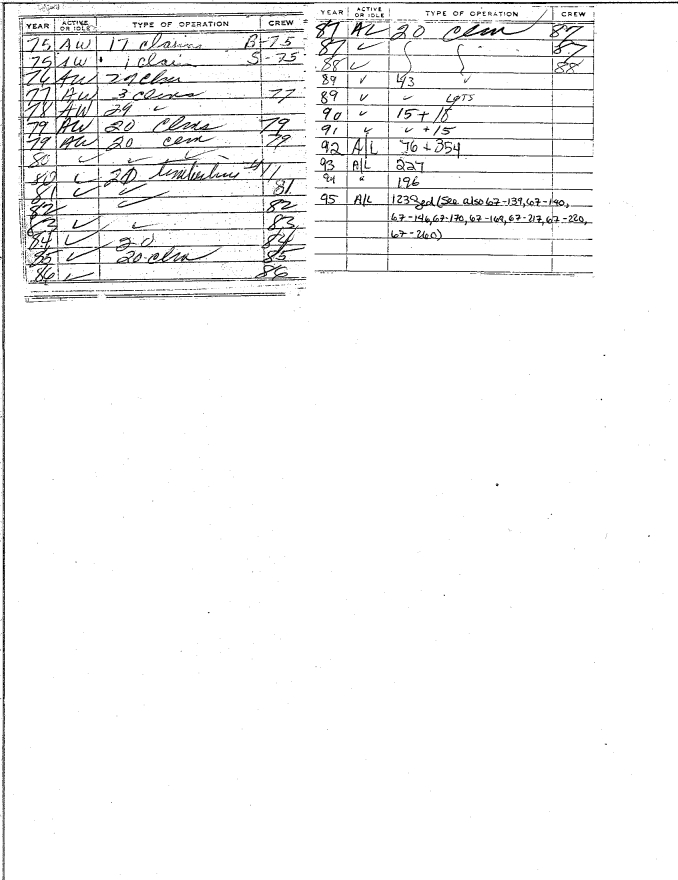 YEAR ACTIVE OR IDLE TYPE OF OPERATION CREW
75 AW 17 claims B-75
75 AW 1 claim S-75
76 AW 29 clms
77 AW 3 clms 77
78 AW 29 ✓
79 AW 20 clms 79
79 AW 20 clm 79
80 ✓ ✓ ✓
80 ✓ 20 timberline
81 ✓ ✓ 81
82 ✓ ✓ 82
83 ✓ ✓ 83
84 ✓ 20 84
85 ✓ 20 clm 85
86 ✓ 86
YEAR ACTIVE OR IDLE TYPE OF OPERATION CREW
87 AL 20 clm 87
87 ✓ 87
88 ✓ 88
89 ✓ 43 ✓
89 ✓ ✓ LGTS
90 ✓ 15 + 18
91 " ✓ + 15
92 A/L 76 + 354
93 A/L 227
94 " 196
95 A/L 123 (See also 67-139, 67-140,
67-146, 67-170, 67-169, 67-217, 67-220,
67-260)